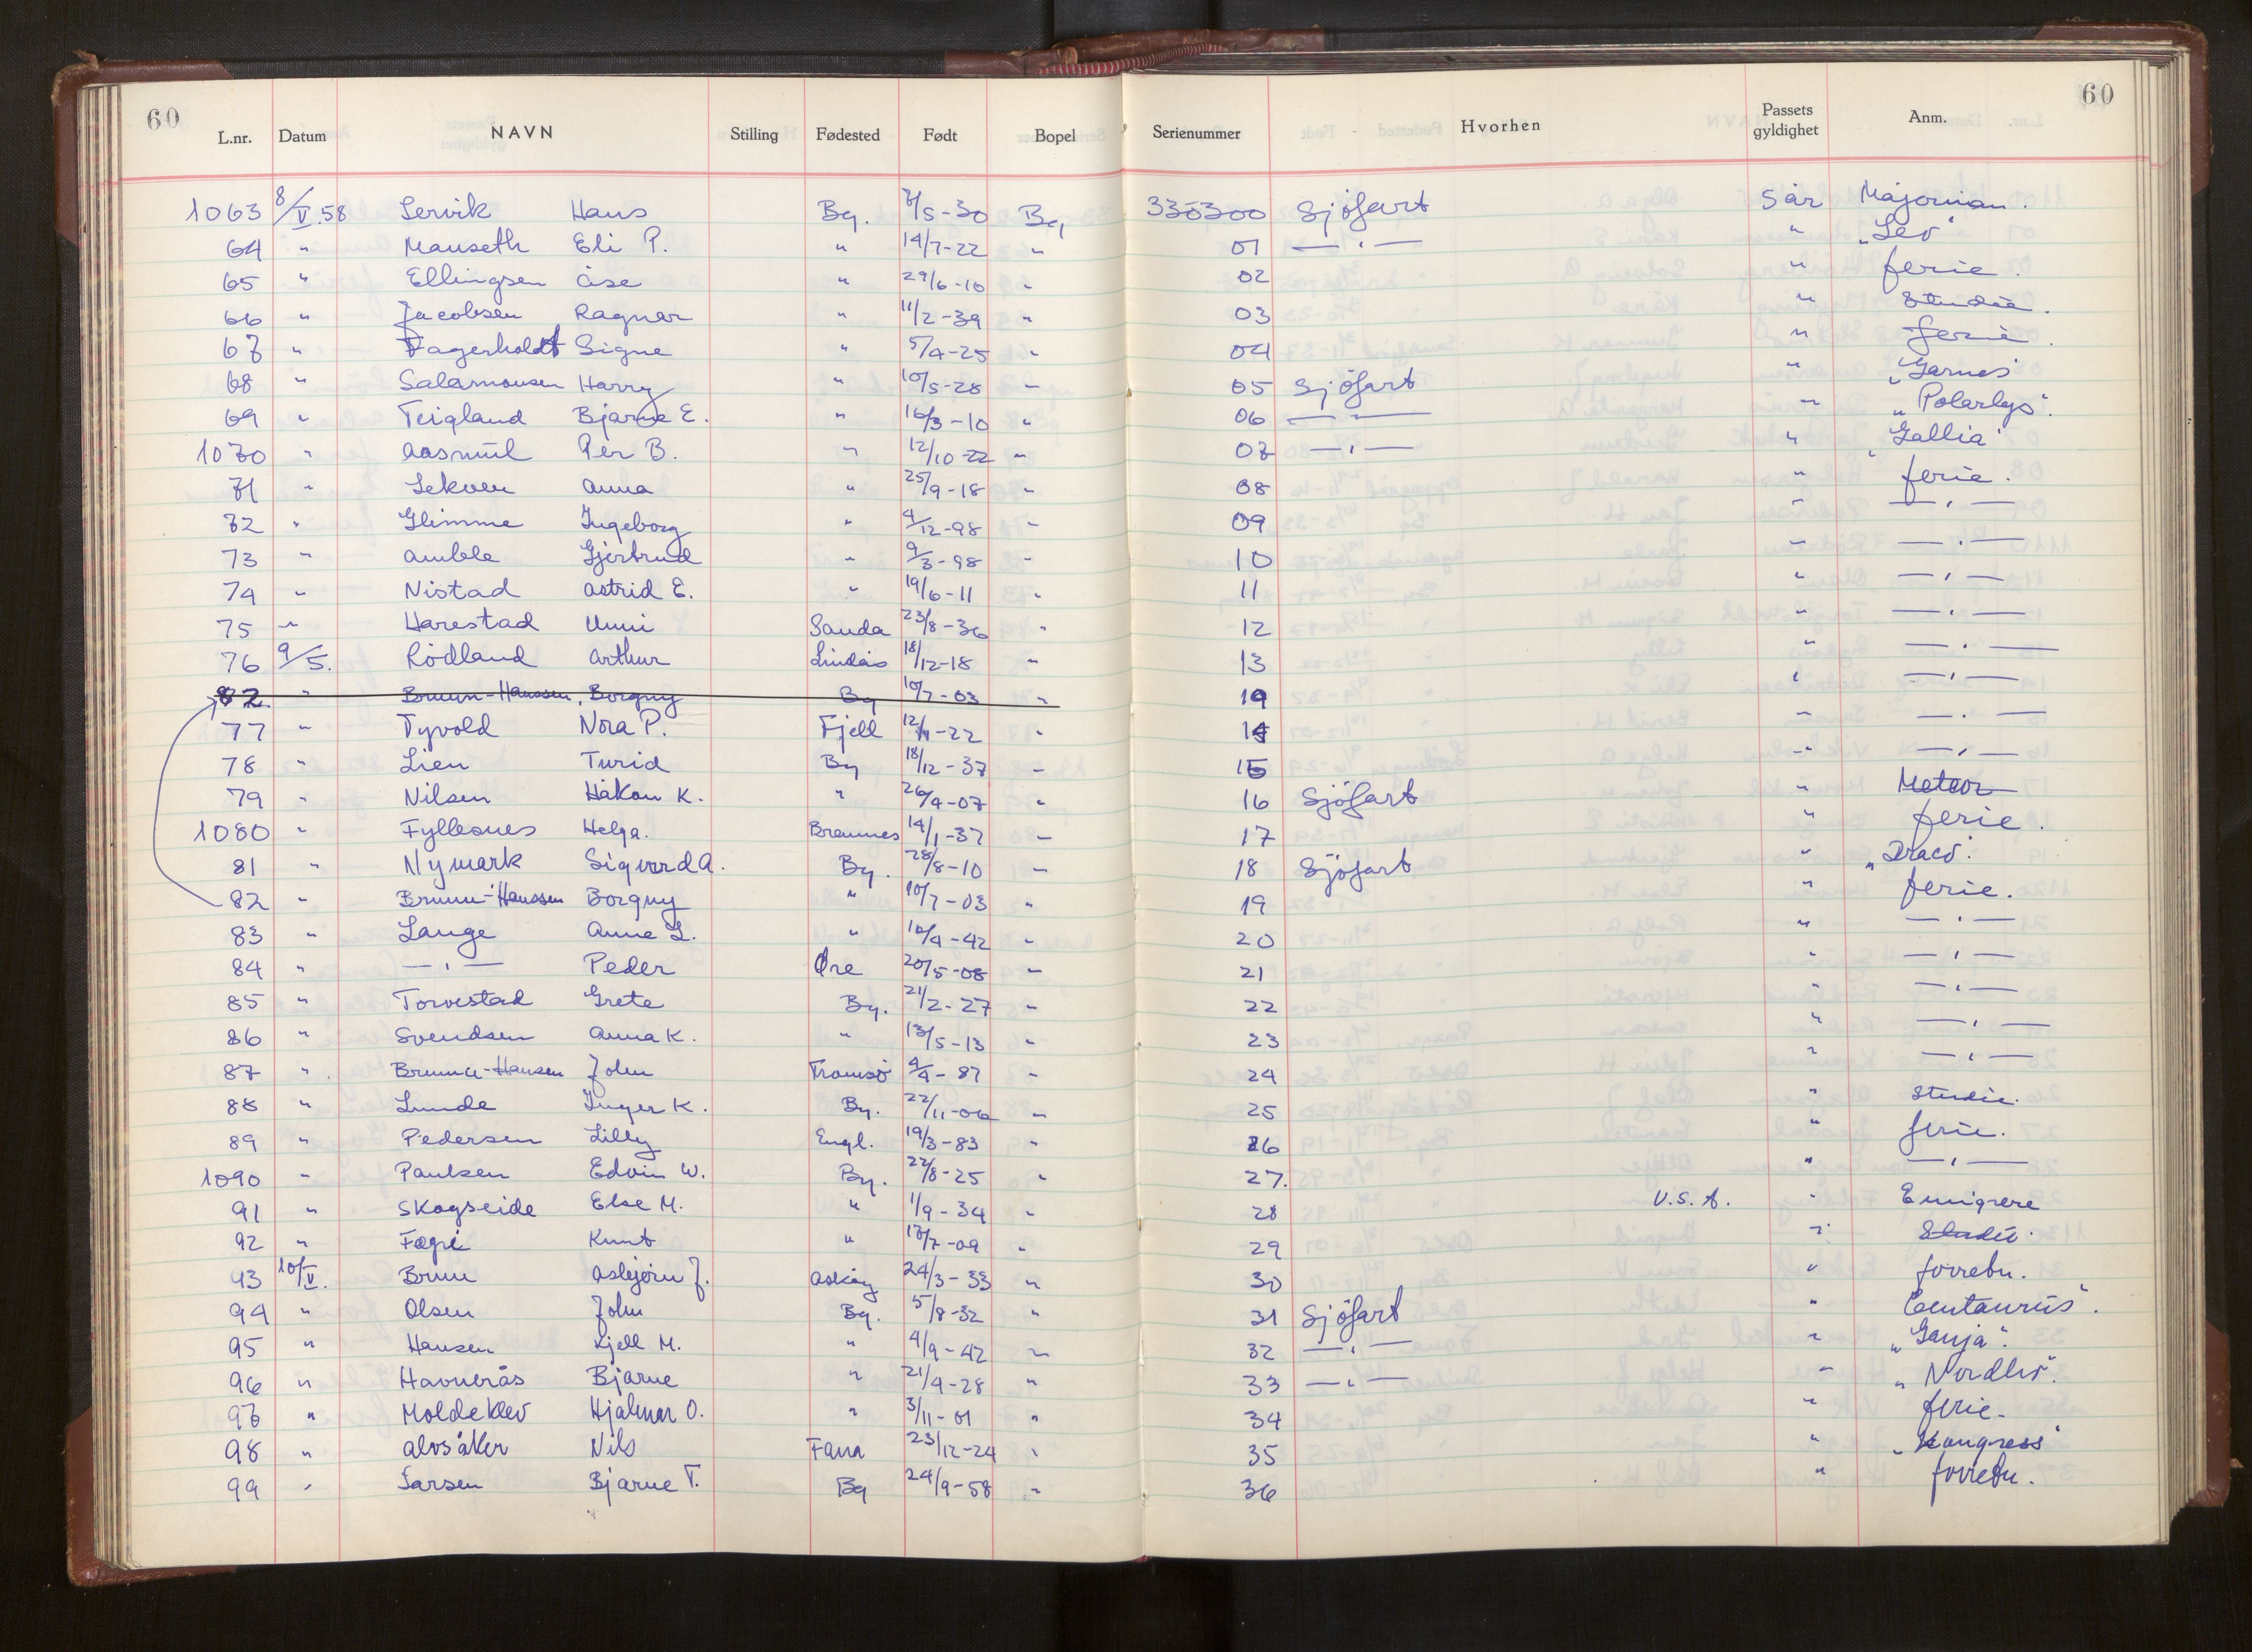 60 60
L.nr. Datum NAVN Stilling Fødested Født Bopel Serienummer Hvorhen Passets gyldighet Anm.
1063 8/V.58 Lervik Hans Bg. 8/5-30 Bg 335300 Sjøfart 5 år Majorian.
64 " Mauseth Eli P. " 14/7-22 " 01 —"— " „Leo"
65 " Ellingsen Åse " 29/6-10 " 02 " ferie.
66 " Jacobsen Ragnar " 11/2-39 " 03 " Studie.
67 " Fagerholdt Signe " 5/4-25 " 04 " ferie.
68 " Salamonsen Harry " 10/5-28 " 05 Sjøfart " „Garnes"
69 " Teigland Bjarne E. " 16/3-10 " 06 —"— " „Polarlys".
1070 " Aasmul Per B. " 12/10-22 " 07 —"— " „Gallia"
71 " Lekven Anna " 25/9-18 " 08 " ferie.
72 " Glimme Ingeborg " 4/12-98 " 09 " —"—
73 " Amble Gjertrud " 9/3-98 " 10 " —"—
74 " Nistad Astrid E. " 19/6-11 " 11 " —"—
75 " Harestad Unni Sauda 23/8-36 " 12 " —"—
76 9/5. Rødland Arthur Lindås 18/12-18 " 13 " —"—
82 " Bruun-Hanssen, Borgny Bg 10/7-03 " 19 " —"—
77 " Tyvold Nora P. Fjell 12/4-22 " 14 " —"—
78 " Lien Turid Bg 18/12-37 " 15 " —"—
79 " Nilsen Håkon K. " 26/4-07 " 16 Sjøfart " Meteor
1080 " Fyllesnes Helga. Bremnes 14/1-37 " 17 " ferie.
81 " Nymark Sigvard A. Bg. 28/8-10 " 18 Sjøfart " „Draco".
82 " Bruun-Hanssen Borgny " 10/7-03 " 19 " ferie.
83 " Lange Anne L. " 16/4-42 " 20 " —"—
84 " —"— Peder Øre 20/5-08 " 21 " —"—
85 " Torvestad Grete Bg. 21/2-27 " 22 " —"—
86 " Svendsen Anna K. " 13/5-13 " 23 " —"—
87 " Bruun-Hansen John Tromsø 4/4-87 " 24 " —"—
88 " Lunde Inger K. Bg. 22/11-06 " 25 " Studie.
89 " Pedersen Lilly Engl. 19/3-83 " 26 " ferie.
1090 " Paulsen Edvin W. Bg. 22/8-25 " 27. " —"—
91 " Skogseide Else M. " 1/9-34 " 28 U.S.A. " Emigrere
92 " Fægri Knut " 17/7-09 " 29 " Studie.
93 10/V. Bruu Asbjørn J. Askøy 24/3-33 " 30 " forretn.
94 " Olsen John Bg. 5/8-32 " 31 Sjøfart " Centaurus".
95 " Hansen Kjell M. " 4/9-42 " 32 —"— " „Ganja".
96 " Havnerås Bjarne " 21/4-28 " 33 —"— " „Nordlis".
97 " Moldeklev Hjalmar O. " 3/11-01 " 34 " ferie.
98 " Alvsåker Nils Fana 23/12-24 " 35 " „Kongress"
99 " Larsen Bjarne T. Bg 24/9-58 " 36 " forretn.